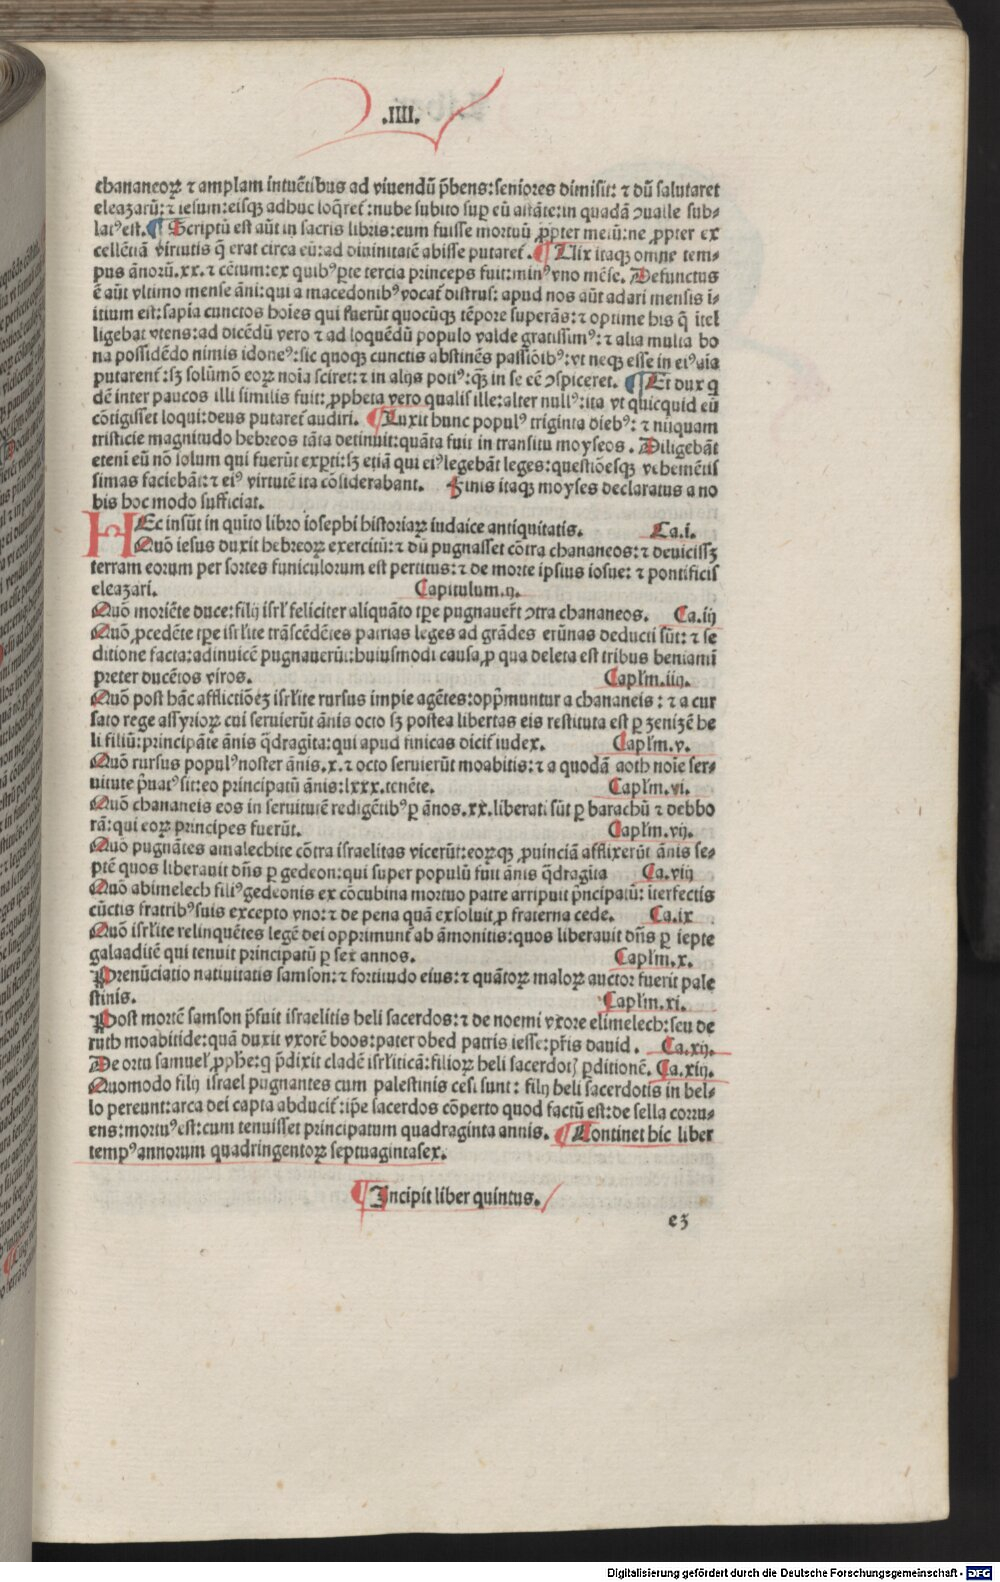 .IIII.
chananeoꝝ ⁊ amplam intuẽtibus ad viuendũ p̃bens: seniores dimisit: ⁊ dũ salutaret
eleazarũ: ⁊ iesum: eisqꝫ adhuc loq̃ret᷑: nube subito sup eũ astãte: in quadã ↄualle sub⸗
latꝰ est. ¶ Scriptũ est aũt in sacris libris: eum fuisse mortuũ ꝓpter metũ: ne ꝓpter ex
cellẽtiã virtutis q̃ erat circa eũ: ad diuinitatẽ abisse putaret᷑. ¶ Uixit itaqꝫ omne tem⸗
pus ãnorũ. xx. ⁊ cẽtum: ex quibꝰ ꝑte tercia princeps fuit: minꝰ vno mẽse. Defunctus
ẽ aũt vltimo mense ãni: qui a macedonibꝰ vocat᷑ distrus: apud nos aũt adari mensis i⸗
itium est: sapia cunctos hoies qui fuerũt quocũqꝫ tẽpore superãs: ⁊ optime his q̃ itel
ligebat vtens: ad dicẽdũ vero ⁊ ad loquẽdũ populo valde gratissimꝰ: ⁊ alia multa bo
na possidẽdo nimis idoneꝰ: sic quoqꝫ cunctis abstinẽs passiõibꝰ: vt neqꝫ esse in eiꝰ aĩa
putarent᷑: sꝫ solũmõ eoꝝ noĩa sciret: ⁊ in alijs potiꝰ: qꝫ in se eẽ ↄspiceret. ¶ Et dux q
dẽ inter paucos illi similis fuit: ꝓpheta vero qualis ille: alter nullꝰ: ita vt quicquid eũ
cõtigisset loqui: deus putaret᷑ audiri. ¶ Luxit hunc populꝰ triginta diebꝰ: ⁊ nũquam
tristicie magnitudo hebreos tãta detinuit: quãta fuit in transitu moyseos. Diligebãt
eteni eũ nõ solum qui fuerũt exꝑti: sꝫ etiã qui eiꝰ legebãt leges: questiõesqꝫ vehemẽtis
simas faciebãt: ⁊ eiꝰ virtutẽ ita cõsiderabant. Finis itaqꝫ moyses declaratus a no
bis hoc modo sufficiat.
HEc insũt in quĩto libro iosephi historiaꝝ iudaice antiquitatis. Ca. i.
Quõ iesus duxit hebreoꝝ exercitũ: ⁊ dũ pugnasset cõtra chananeos: ⁊ deuicissꝫ
terram eorum per sortes funiculorum est pertitus: ⁊ de morte ipsius iosue: ⁊ pontificis
eleazari. Capitulum. ij.
Quõ moriẽte duce: filij isrl̃ feliciter aliquãto tꝑe pugnauer̃t ↄtra chananeos. Ca. iij
Quõ ꝓcedẽte tꝑe isrl̃ite trãscẽdẽtes patrias leges ad grãdes erũnas deducti sũt: ⁊ se
ditione facta: adinuicẽ pugnauerũt: huiusmodi causa ꝓ qua deleta est tribus beniamĩ
preter ducẽtos viros. Capl̃m. iiij.
Quõ post hãc afflictiõeꝫ isrl̃ite rursus impie agẽtes: opp̃muntur a chananeis: ⁊ a cur
sato rege assyrioꝝ cui seruierũt ãnis octo sꝫ postea libertas eis restituta est ꝑ zenizẽ he
li filiũ: principãte ãnis q̃dragĩta: qui apud finicas dicit᷑ iudex. Capl̃m. v.
Quõ rursus populꝰ noster ãnis. x. ⁊ octo seruierũt moabitis: ⁊ a quodã aoth noĩe ser⸗
uitute p̃uatꝰ sit: eo principatũ ãnis: lxxx. tenẽte. Capl̃m. vi.
Quõ chananeis eos in seruitutẽ redigẽtibꝰ ꝑ ãnos. xx. liberati sũt ꝑ barachũ ⁊ debbo
rã: qui eoꝝ principes fuerũt. Capl̃m. vij.
Quõ pugnãtes amalechite cõtra israelitas vicerũt: eoꝝqꝫ ꝓuinciã afflixerũt ãnis se⸗
ptẽ quos liberauit dñs ꝑ gedeon: qui super populũ fuit ãnis q̃dragĩta Ca. viij
Quõ abimelech filiꝰ gedeonis ex cõcubina mortuo patre arripuit p̃ncipatũ: iterfectis
cũctis fratribꝰ suis excepto vno: ⁊ de pena quã exsoluit ꝓ fraterna cede. Ca. ix
Quõ isrl̃ite relinquẽtes legẽ dei opprimunt᷑ ab ãmonitis: quos liberauit dñs ꝑ iepte
galaaditẽ qui tenuit principatũ ꝑ sex annos. Capl̃m. x.
Prenũciatio natiuitatis samson: ⁊ fortitudo eius: ⁊ quãtoꝝ maloꝝ auctor fuerit pale
stinis. Capl̃m. xi.
Post mortẽ samson p̃fuit israelitis heli sacerdos: ⁊ de noemi vxore elimelech: seu de
ruth moabitide: quã duxit vxorẽ boos: pater obed patris iesse: pr̃is dauid. Ca. xij.
De ortu samuel̃ ꝓphe: q̃ p̃dixit cladẽ isrl̃iticã: filioꝝ heli sacerdotꝭ ꝑditionẽ. Ca. xiij.
Quomodo filij israel pugnantes cum palestinis cesi sunt: filij heli sacerdotis in bel⸗
lo pereunt: arca dei capta abducit᷑: ip̃e sacerdos cõperto quod factũ est: de sella corru⸗
ens: mortuꝰ est: cum tenuisset principatum quadraginta annis. ¶ Continet hic liber
tempꝰ annorum quadringentoꝝ septuagintasex.
¶ Incipit liber quintus.
e3
Digitalisierung gefördert durch die Deutsche Forschungsgemeinschaft - DFG